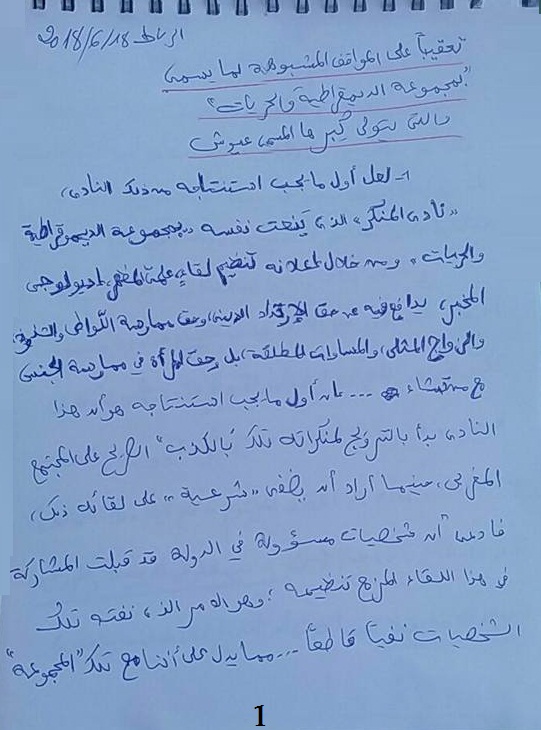 الرباط 2018/6/18
تعقيباً على المواقف المشبوهة لما يسمى
"بمجموعة الديمقراطية والحريات"
والتي يتولى كبرها المسمى عيوش
1- لعل أول ما يجب استنتاجه من ذلك النادي،
«نادي المنكر» الذي ينعت نفسه «بمجموعة الديموقراطية
والحريات» ومن خلال إعلانه تنظيم لقاء إديولوجي
يدافع فيه عن حق الارتداد الديني وحق ممارسة اللواطي
والزواج المثلي، والمساوات المطلقة، بل وحق المرأة في ممارسة الجنس
مع من تشاء ... فإن أول ما يجب استنتاجه هو أن هذا
النادي بدأ بالترويج لمنكراته تلك "بالكذب" الصريح على المجتمع
المغربي، حينما أراد أن يضفي «شرعية» على لقائه ذلك،
فادعى "أن شخصيات مسؤولة في الدولة قد قبلت المشاركة
في هذا اللقاء المزمع تنظيمه؛ وهو الأمر الذي نفته تلك
الشخصيات نفياً قاطعاً ... مما يدل على أننا مع تلك "المجموعة"
1